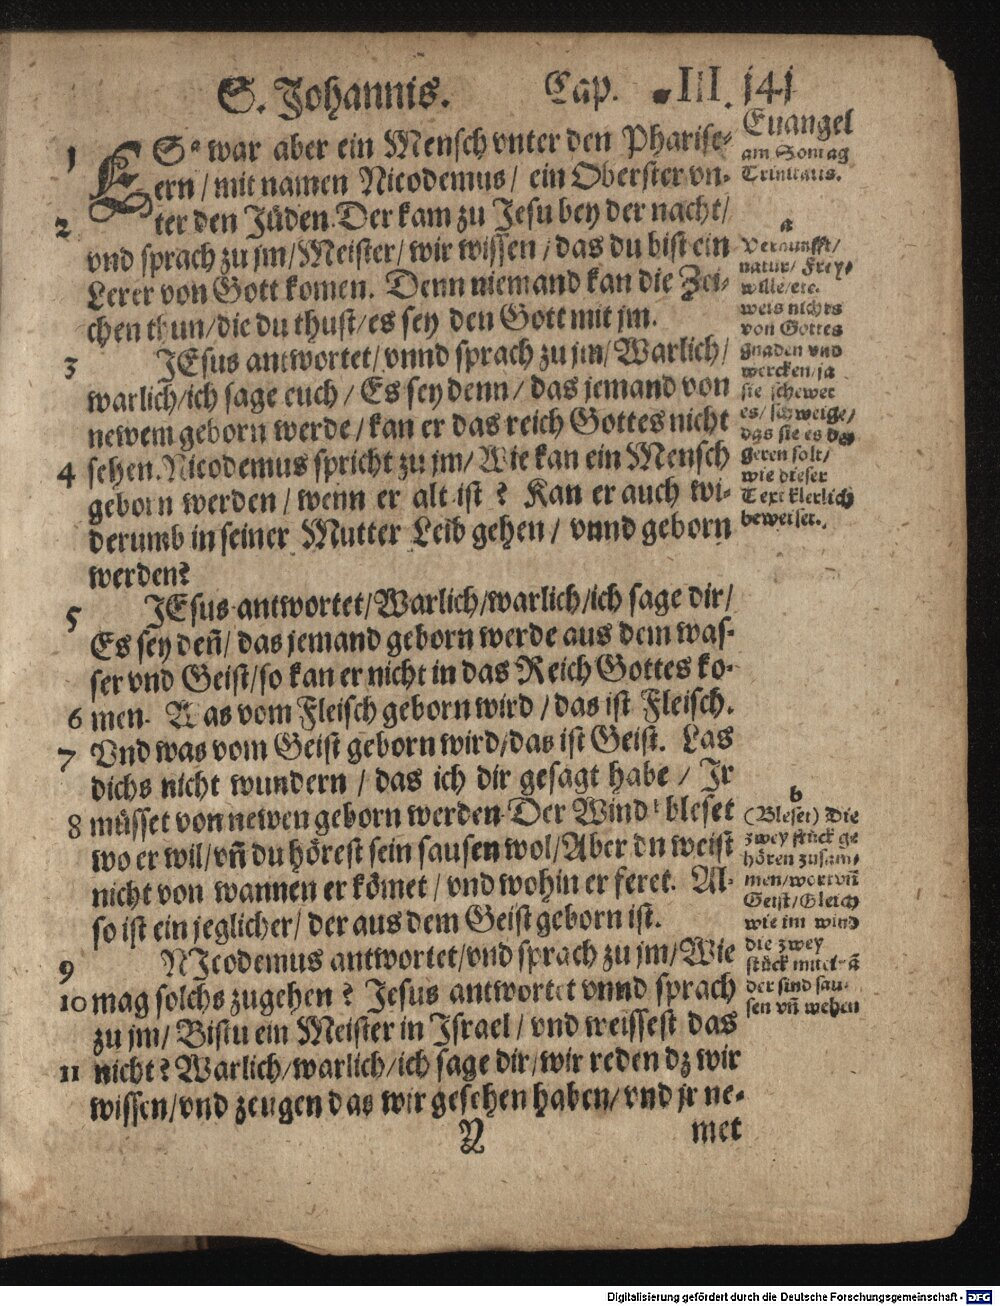 S. Johannis. Cap. III. 141
1 ES a war aber ein Mensch vnter den Pharise⸗
ern / mit namen Nicodemus / ein Oberster vn⸗
2 ter den Jüden. Der kam zu Jesu bey der nacht /
vnd sprach zu jm / Meister / wir wissen / das du bist ein
Lerer von Gott komen. Denn niemand kan die Zei⸗
chen thun / die du thust / es sey den Gott mit jm.
3 JEsus antwortet / vnnd sprach zu jm / Warlich /
warlich / ich sage euch / Es sey denn / das jemand von
newem geborn werde / kan er das reich Gottes nicht
4 sehen. Nicodemus spricht zu jm / Wie kan ein Mensch
geborn werden / wenn er alt ist ? Kan er auch wi⸗
derumb in seiner Mutter Leib gehen / vnnd geborn
werden?
5 JEsus antwortet / Warlich / warlich / ich sage dir /
Es sey deñ / das jemand geborn werde aus dem was⸗
ser vnd Geist / so kan er nicht in das Reich Gottes ko⸗
6 men. Was vom Fleisch geborn wird / das ist Fleisch.
7 Vnd was vom Geist geborn wird / das ist Geist. Las
dichs nicht wundern / das ich dir gesagt habe / Jr
8 müsset von newen geborn werden. Der Wind b bleset
wo er wil / vñ du hörest sein sausen wol / Aber dn weist
nicht von wannen er kömet / vnd wohin er feret. Al⸗
so ist ein jeglicher / der aus dem Geist geborn ist.
9 NJcodemus antwortet / vnd sprach zu jm / Wie
10 mag solchs zugehen ? Jesus antwortet vnnd sprach
zu jm / Bistu ein Meister in Jsrael / vnd weissest das
11 nicht ? Warlich / warlich / ich sage dir / wir reden dz wir
wissen / vnd zeugen das wir gesehen haben / vnd jr ne⸗
Y met
Euangel
am Sontag
Trinitatis.
a
Vernunfft /
natur / Frey⸗
wille / etc.
weis nichts
von Gottes
gnaden vnd
wercken / ja
sie schewet
es / schweige /
das sie es be⸗
geren solt /
wie dieser
Text klerlich
beweiset.
b
(Bleset) Die
zwey stück ge
hören zusam⸗
men / wort vñ
Geist / Gleich
wie im wind
die zwey
stück
der sind sau⸗
sen vñ wehen
Digitalisierung gefördert durch die Deutsche Forschungsgemeinschaft - DFG